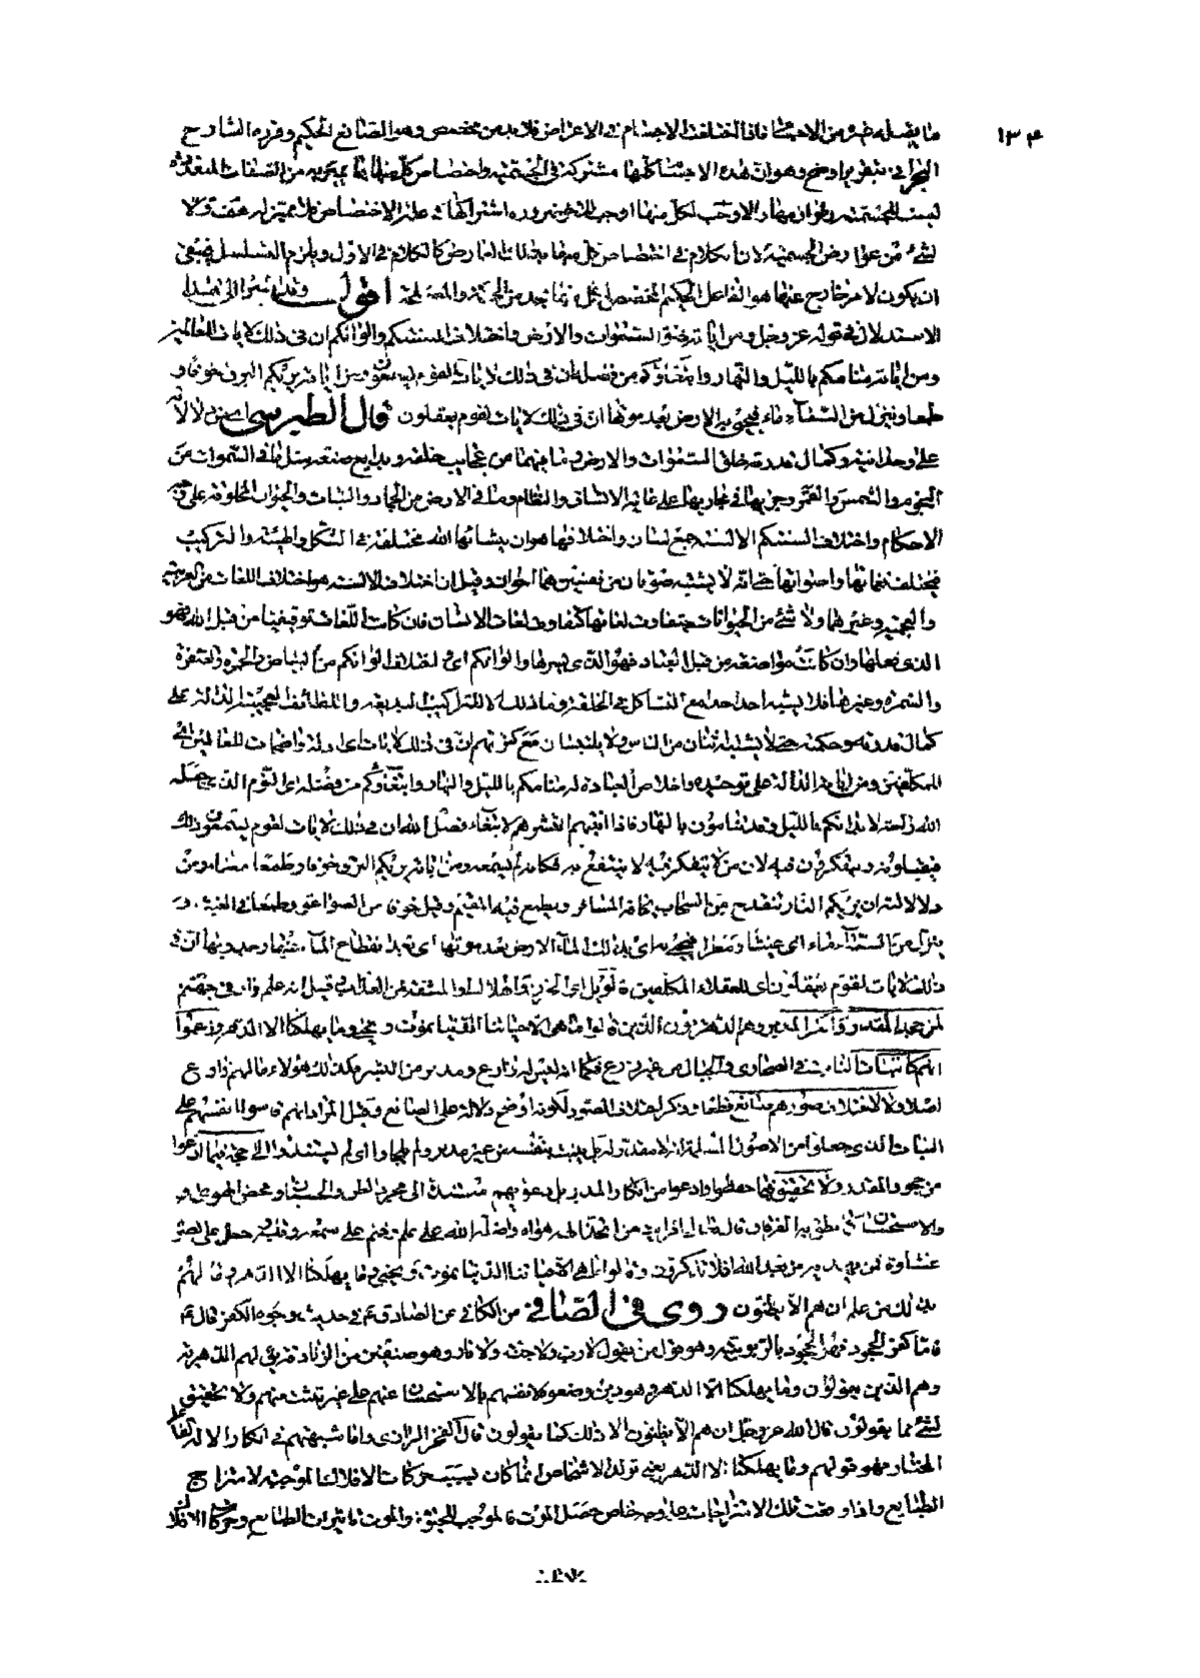 ١٣٤
ما يفصله غيره من الاجسام فاذا اختلفت الاجسام في الاعراض فلابد من مخصص وهو الصانع الحكيم وقرره الشارح
البحراني بتقرير اوضح وهو ان هذه الاجسام كلها مشتركة في الجسمية واختصاص كل منها بما يميز به من الصفات المتعددة
ليست الجسمية ولوازمها والا وجب لكل منها ما وجب للاخر ضرورة اشتراكها في علة الاختصاص فلا مميز له هف ولا
لشئ من عوارض الجسمية لان الكلام في اختصاص كل منها بذلك العارض كالكلام في الاول ويلزم التسلسل فبقى
ان يكون لامر خارج عنها هو الفاعل الحكيم المخصص لكل منها بحد من الحكمة والمصلحة اقول وقد اشير الى هذا
الاستدلال في قوله عز وجل ومن اياته خلق السموات والارض واختلاف السنتكم والوانكم ان في ذلك لايات للعالمين
ومن اياته منامكم بالليل والنهار وابتغاؤكم من فضله ان في ذلك لايات لقوم يسمعون ومن اياته يريكم البرق خوفا و
طمعا وينزل من السماء ماء فيحيي به الارض بعد موتها ان في ذلك لايات لقوم يعقلون قال الطبرسي اي من دلالاته
على وحدانيته وكمال قدرته خلق السموات والارض وما فيهما من عجايب خلقه وبدايع صنعه مثل ما في السموات من
النجوم والشمس والقمر وجريها في مجاريها على غاية الاتساق والنظام وما في الارض من الجماد والنبات والحيوان المخلوقة على وجه
الاحكام واختلاف السنتكم الالسنة جمع لسان واختلافها هو ان ينشأها الله مختلفة في الشكل والهيئة والتركيب
فيختلف نغماتها واصواتها حتى انه لا يشتبه صوتان من نفسين هما اخوان وقيل ان اختلاف الالسنة هو اختلاف اللغات من العربية
والعجمية وغيرهما ولا شئ من الحيوانات يتفاوت لغاتها كتفاوت لغات الانسان فان كانت اللغات توقيفيا من قبل الله فهو
الذي فعلها وان كانت مواضعة من قبل العباد فهو الذي يسرها والوانكم اي اختلاف الوانكم من البياض والحمرة والصفرة
والسمرة وغيرها فلا يشبه احد احدا مع التشاكل في الخلقة وما ذلك الا للتراكيب البديعة واللطائف العجيبة الدالة على
كمال قدرته وحكمته حتى لا يشتبه اثنان من الناس ولا يلتبسان مع كثرتهم ان في ذلك لايات اي ادلة واضحات للعالمين اي
المكلفين ومن اياته الدالة على توحيده واخلاص العبادة له منامكم بالليل والنهار وابتغاؤكم من فضله اي النوم الذي جعله
الله راحة لابدانكم بالليل وقد تنامون بالنهار فاذا انتبهتم انتشرتم لابتغاء فضل الله ان في ذلك لايات لقوم يسمعون ذلك
فيقبلونه ويتفكرون فيه لان من لا يتفكر فيه لا ينتفع به فكانه لم يسمعه ومن اياته يريكم البرق خوفا وطمعا معناه ومن
دلالاته ان يريكم النار تنقدح من السحاب يخافه المسافر ويطمع فيه المقيم وقيل خوفا من الصواعق وطمعا في الغيث و
ينزل من السماء ماء اي غيثا ومطرا فيحيي به اي بذلك الماء الارض بعد موتها اي بعد انقطاع الماء عنها وجدوبها ان في
ذلك لايات لقوم يعقلون اي للعقلاء المكلفين
لمن جحد المقدر وانكر المدبر وهم الدهريون الذين قالوا ما هي الا حياتنا الدنيا نموت ونحيى وما يهلكنا الا الدهر وزعموا
انهم كالنبات النابت في الصحاري والجبال من غير زرع فكما انه ليس له زارع ومدبر من البشر فكذلك هؤلاء ما لهم زارع
اصلا ولا لاختلاف صورهم صانع قطعا وذكر اختلاف الصور لكونه اوضح دلالة على الصانع وقيل المراد انهم قاسوا انفسهم على
النبات الذي جعلوا من الاصول المسلمة انه لا مقدر له بل ينبت بنفسه من غير مدبر ولم يلجاوا اي لم يستندوا الى حجة فيما ادعوا
من جحود المقدر ولا تحقيق فيما حفظوا وادعوا من انكار المدبر بل دعويهم مستندة الى مجرد الظن والحسبان ومحض الهوى و
والاستحسان كما نطق به القرآن قال تعالى افرايت من اتخذ الهه هواه واضله الله على علم وختم على سمعه وقلبه وجعل على بصره
غشاوة فمن يهديه من بعد الله افلا تذكرون وقالوا ما هي الا حياتنا الدنيا نموت ونحيى وما يهلكنا الا الدهر وما لهم
بذلك من علم ان هم الا يظنون روى في الصافي من الكافي عن الصادق ع في حديث وجوه الكفر قال ع
فاما كفر الجحود فهو الجحود بالربوبية وهو قول من يقول لا رب ولا جنة ولا نار وهو صنفين من الزنادقة يقال لهم الدهرية
وهم الذين يقولون وما يهلكنا الا الدهر وهو دين وضعوه لانفسهم بالاستحسان منهم على غير تثبت منهم ولا تحقيق
لشئ مما يقولون قال الله عز وجل ان هم الا يظنون ان ذلك كما يقولون قال الفخر الرازي واما شبهتهم في انكار الاله الفاعل
المختار فهو قولهم وما يهلكنا الا الدهر يعني تولد الاشخاص انما كان بسبب حركات الافلاك الموجبة لامتزاج
الطبايع واذا وقعت تلك الامتزاجات على وجه خاص حصل الموت فالموجب للحيوة والموت تاثيرات الطبايع وحركات الافلاك